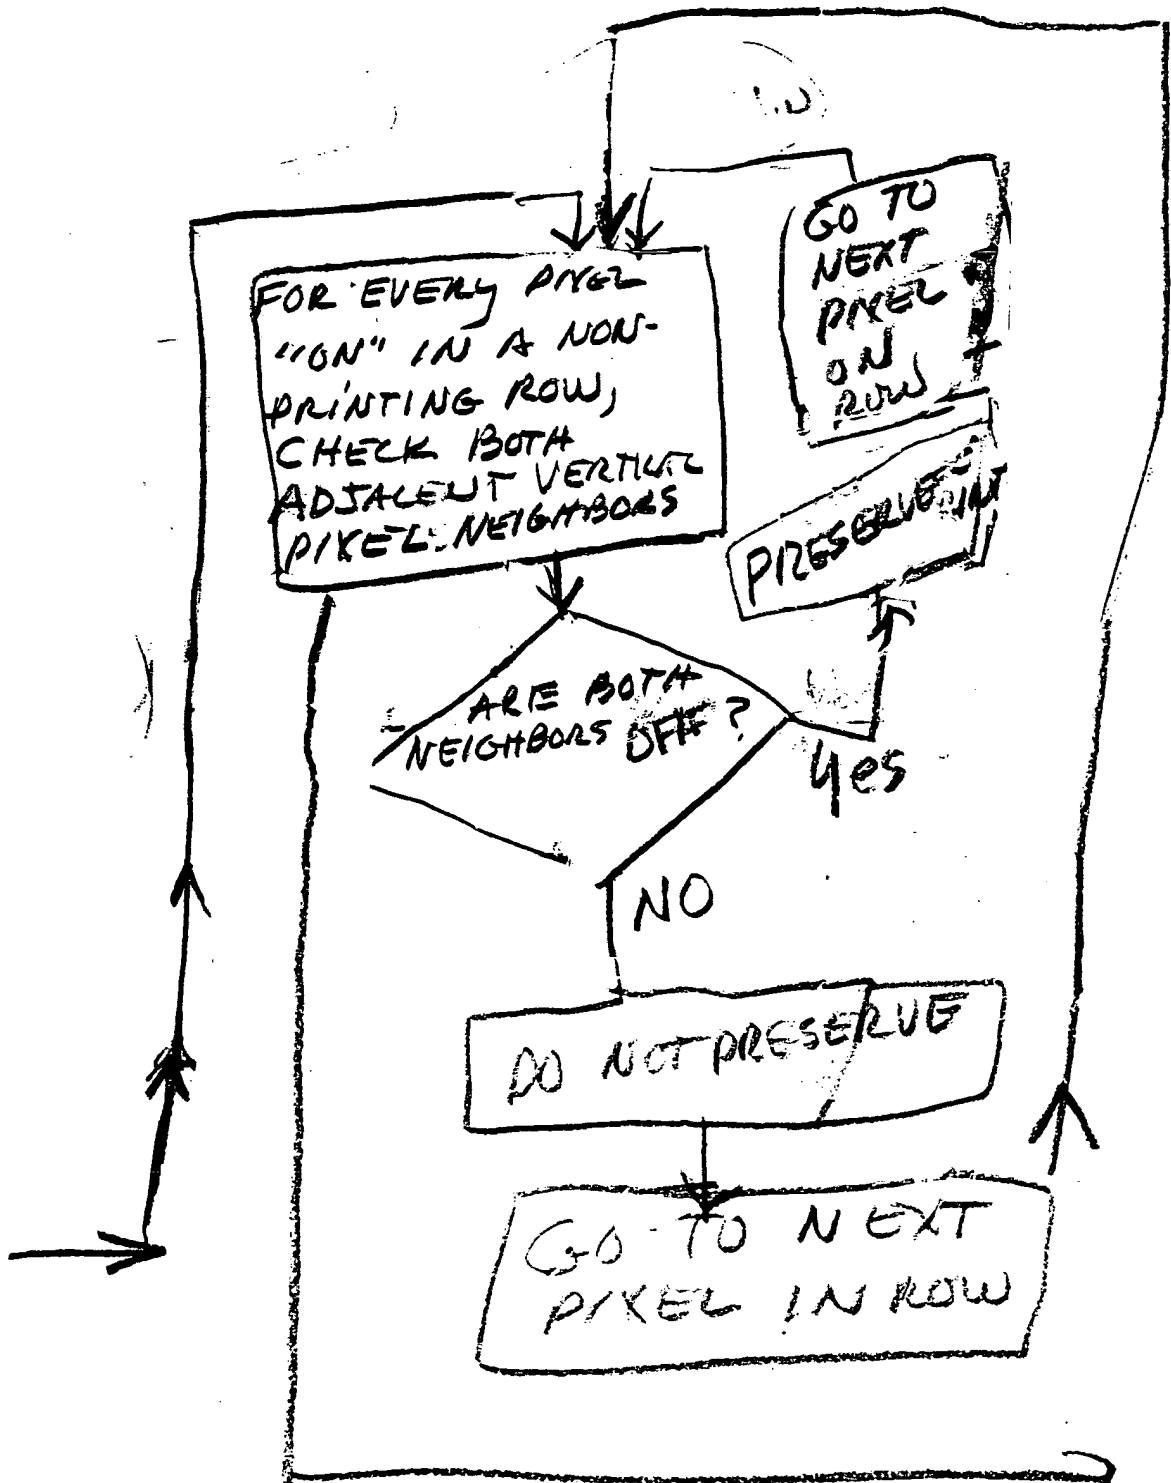 FOR EVERY PIXEL
"ON" IN A NON-
PRINTING ROW,
CHECK BOTH
ADJACENT VERTICAL
PIXEL NEIGHBORS
GO TO
NEXT
PIXEL
ON
ROW
PRESERVE
ARE BOTH
NEIGHBORS OFF ?
Yes
NO
DO NOT PRESERVE
GO TO NEXT
PIXEL IN ROW